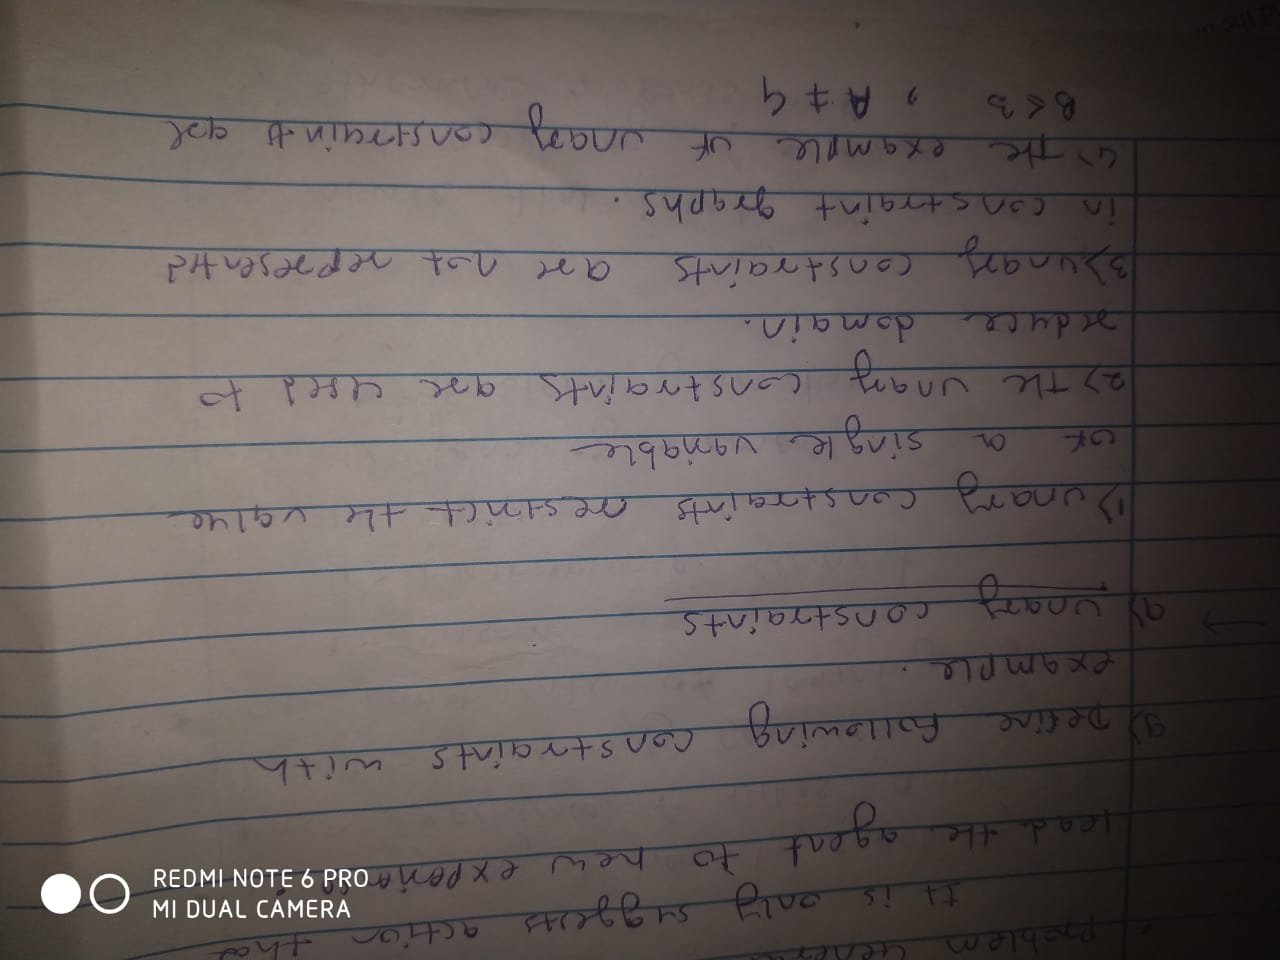 Problem Gener
It is only suggests action that
lead the agent to new experience
REDMI NOTE 6 PRO
MI DUAL CAMERA
g) Define following constraints with
example.
→ a) unary constraints
1) unary constraints restrict the value
of a single variable
2) The unary constraints are used to
reduce domain.
3) unary constraints are not represented
in constraint graphs.
4) The example of unary constraints are
B < 3 , A ≠ G